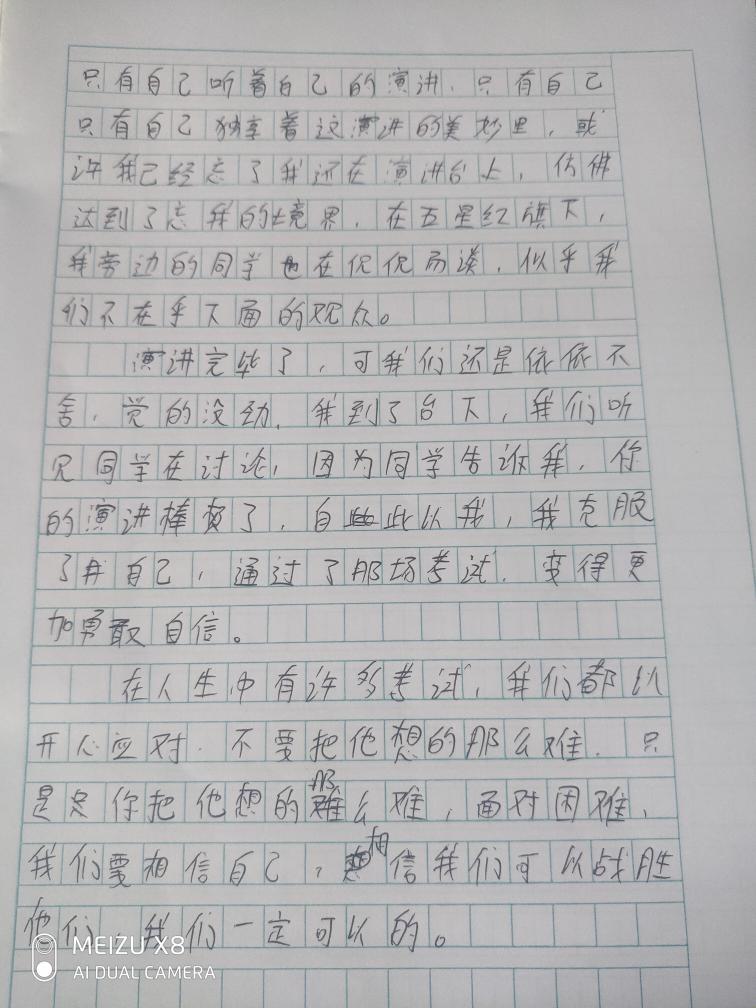 只有自己听着自己的演讲，只有自己
只有自己独享着这演讲的美妙里，或
许我己经忘了我还在演讲台上，仿佛
达到了忘我的境界，在五星红旗下，
我旁边的同学也在侃侃而谈，似乎我
们不在乎下面的观众。
演讲完毕了，可我们还是依依不
舍，觉的没劲，我到了台下，我们听
见同学在讨论，因为同学告诉我，你
的演讲棒极了，自此以我，我克服
了自己，通过了那场考试，变得更
加勇敢自信。
在人生中有许多考试，我们都以
开心应对，不要把他想的那么难，只
是是你把他想的那么难，面对困难，
我们要相信自己，相信我们可以战胜
他们，我们一定可以的。
MEIZU X8
AI DUAL CAMERA